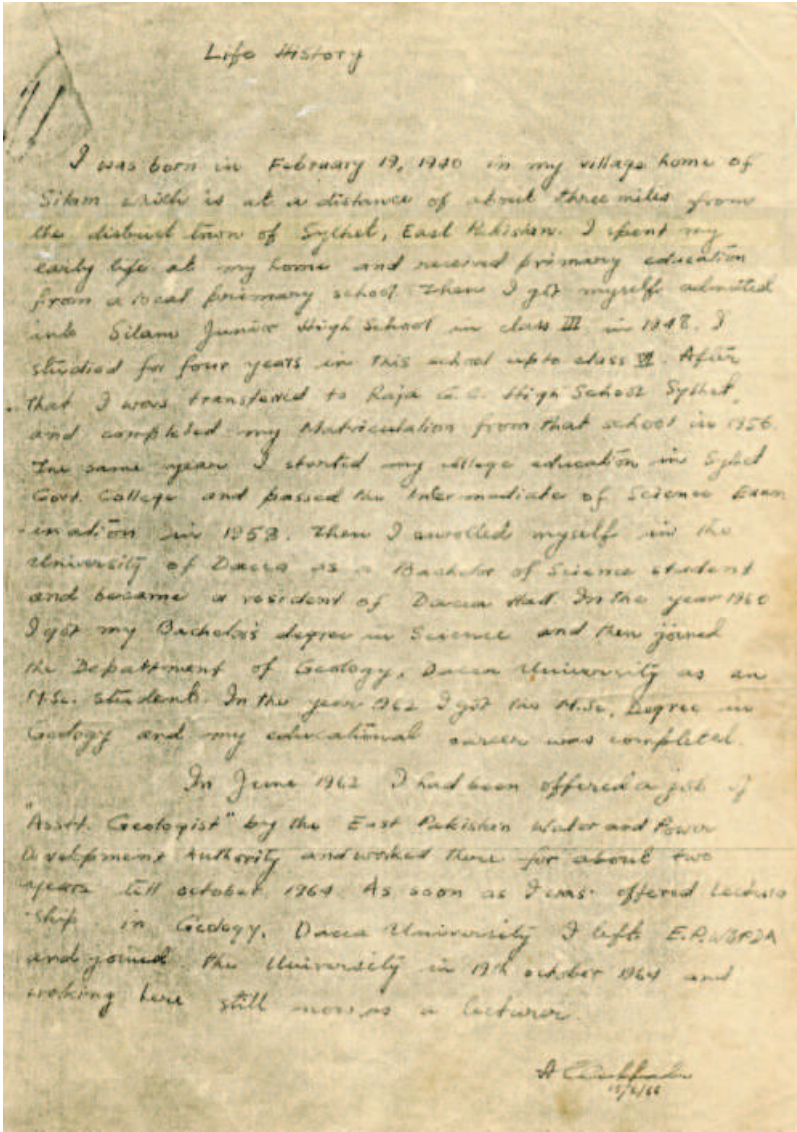 Life History
I was born in February 19, 1940 in my village home of
Silam which is at a distance of about three miles from
the district town of Sylhet, East Pakistan. I spent my
early life at my home and received primary education
from a local primary school. Then I got myself admitted
into Silam Junior High School in class III in 1948. I
studied for four years in this school upto class VI. After
that I was transferred to Raja G.C. High School Sylhet,
and completed my Matriculation from that school in 1956.
The same year I started my college education in Sylhet
Govt. College and passed the Intermediate of Science Exam
-ination in 1958. Then I enrolled myself in the
University of Dacca as a Bachelor of Science student
and became a resident of Dacca Hall. In the year 1960
I got my Bachelor's degree in Science and then joined
the Department of Geology, Dacca University as an
M.Sc. student. In the year 1962 I got the M.Sc. Degree in
Geology and my educational career was completed.
In June 1962 I had been offered a job of
"Asstt. Geologist" by the East Pakistan Water and Power
Development Authority and worked there for about two
years till october 1964. As soon as I was offered Lecture
-ship in Geology, Dacca University I left E.P.WAPDA
and joined the University in 19th october 1964 and
working here still now as a lecturer.
A